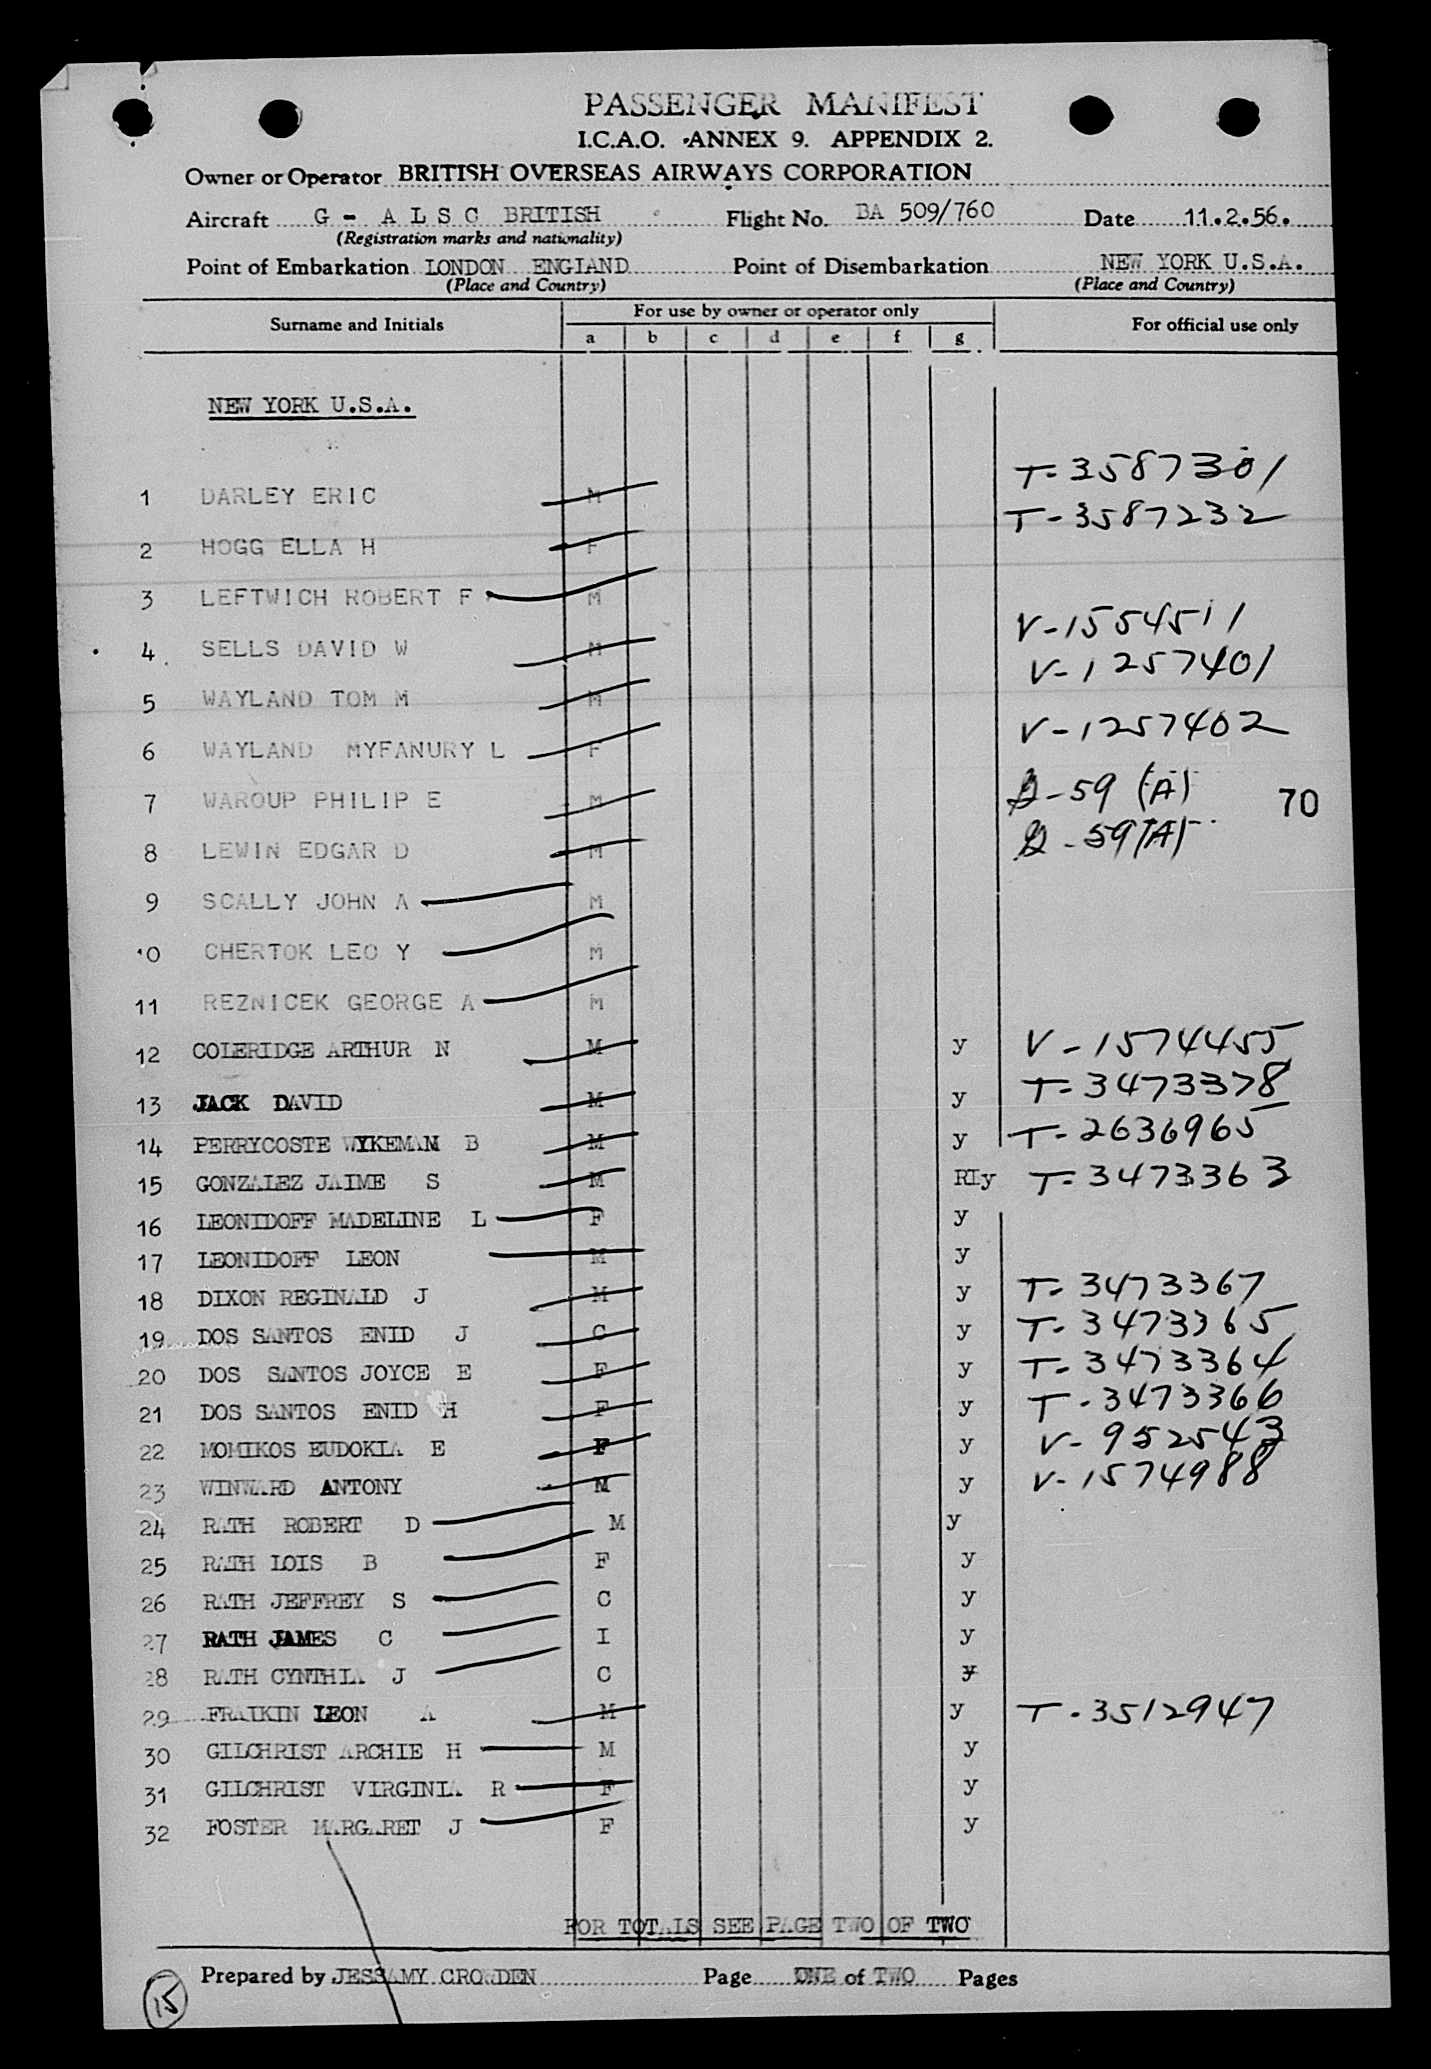 PASSENGER MANIFEST
I.C.A.O. ANNEX 9. APPENDIX 2.
Owner or Operator BRITISH OVERSEAS AIRWAYS CORPORATION
Aircraft G - A L S C BRITISH Flight No. BA 509/760 Date 11.2.56.
(Registration marks and nationality)
Point of Embarkation LONDON ENGLAND Point of Disembarkation NEW YORK U.S.A.
(Place and Country) (Place and Country)
Surname and Initials For use by owner or operator only For official use only
a b c d e f g
NEW YORK U.S.A.
1 DARLEY ERIC M T-3587301
2 HOGG ELLA H F T-3587232
3 LEFTWICH ROBERT F M
4 SELLS DAVID W M V-1554511
5 WAYLAND TOM M M V-1257401
6 WAYLAND MYFANURY L F V-1257402
7 WAROUP PHILIP E M -59 (A) 70
8 LEWIN EDGAR D M -59 (A)
9 SCALLY JOHN A M
10 CHERTOK LEO Y M
11 REZNICEK GEORGE A M
12 COLERIDGE ARTHUR N M y V-1574455
13 JACK DAVID M y T-3473378
14 PERRYCOSTE WYKEMAM B M y T-2636965
15 GONZALEZ JAIME S M RIy T-3473363
16 LEONIDOFF MADELINE L F y
17 LEONIDOFF LEON M y
18 DIXON REGINALD J M y T-3473367
19 DOS SANTOS ENID J C y T-3473365
20 DOS SANTOS JOYCE E F y T-3473364
21 DOS SANTOS ENID H F y T-3473366
22 MOMIKOS EUDOKIA E F y V-952543
23 WINWARD ANTONY M y V-1574988
24 RATH ROBERT D M y
25 RATH LOIS B F y
26 RATH JEFFREY S C y
27 RATH JAMES C I y
28 RATH CYNTHIA J C y
29 FRAIKIN LEON A M y T-3512947
30 GILCHRIST ARCHIE H M y
31 GILCHRIST VIRGINIA R F y
32 FOSTER MARGARET J F y
FOR TOTALS SEE PAGE TWO OF TWO
Prepared by JESSAMY CROWDEN Page ONE of TWO Pages
15